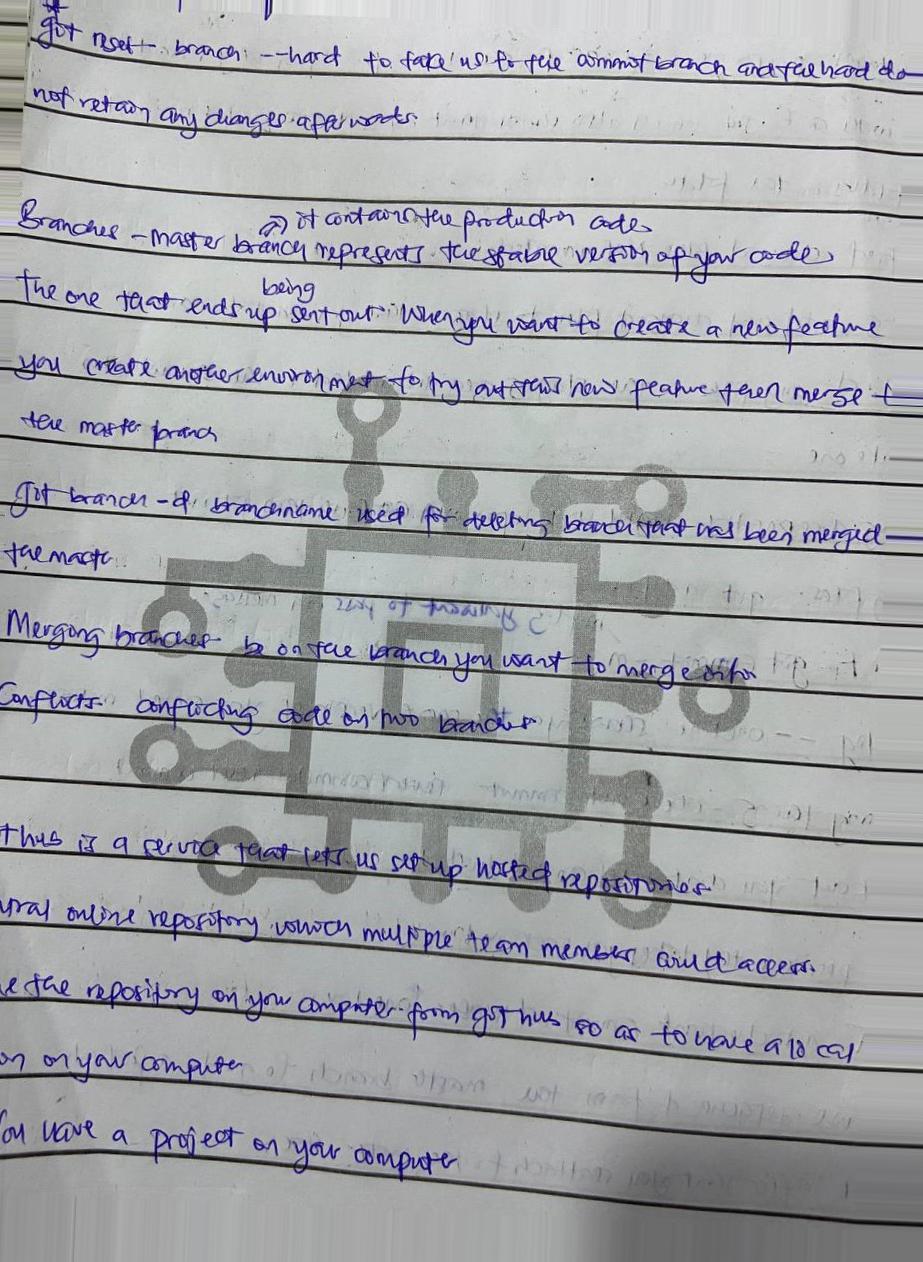 git reset branch --hard to take us to the commit branch and the hard do
not retain any changes afterwards.
it contains the production code
Branches - master branch represents the stable version of your code
being
The one that ends up sent out. When you want to create a new feature
you create another environment to try out this new feature then merge t
the master branch
git branch -d branchname used for deleting branch that has been merged
the maste
Merging branches be on the branch you want to merge onto
Conflicts conflicting code on two branches
thub is a service that lets us set up hosted repositories
online repository which multiple team member could access.
e the repository on your computer from github so as to have a local
on on your computer
ou have a project on your computer